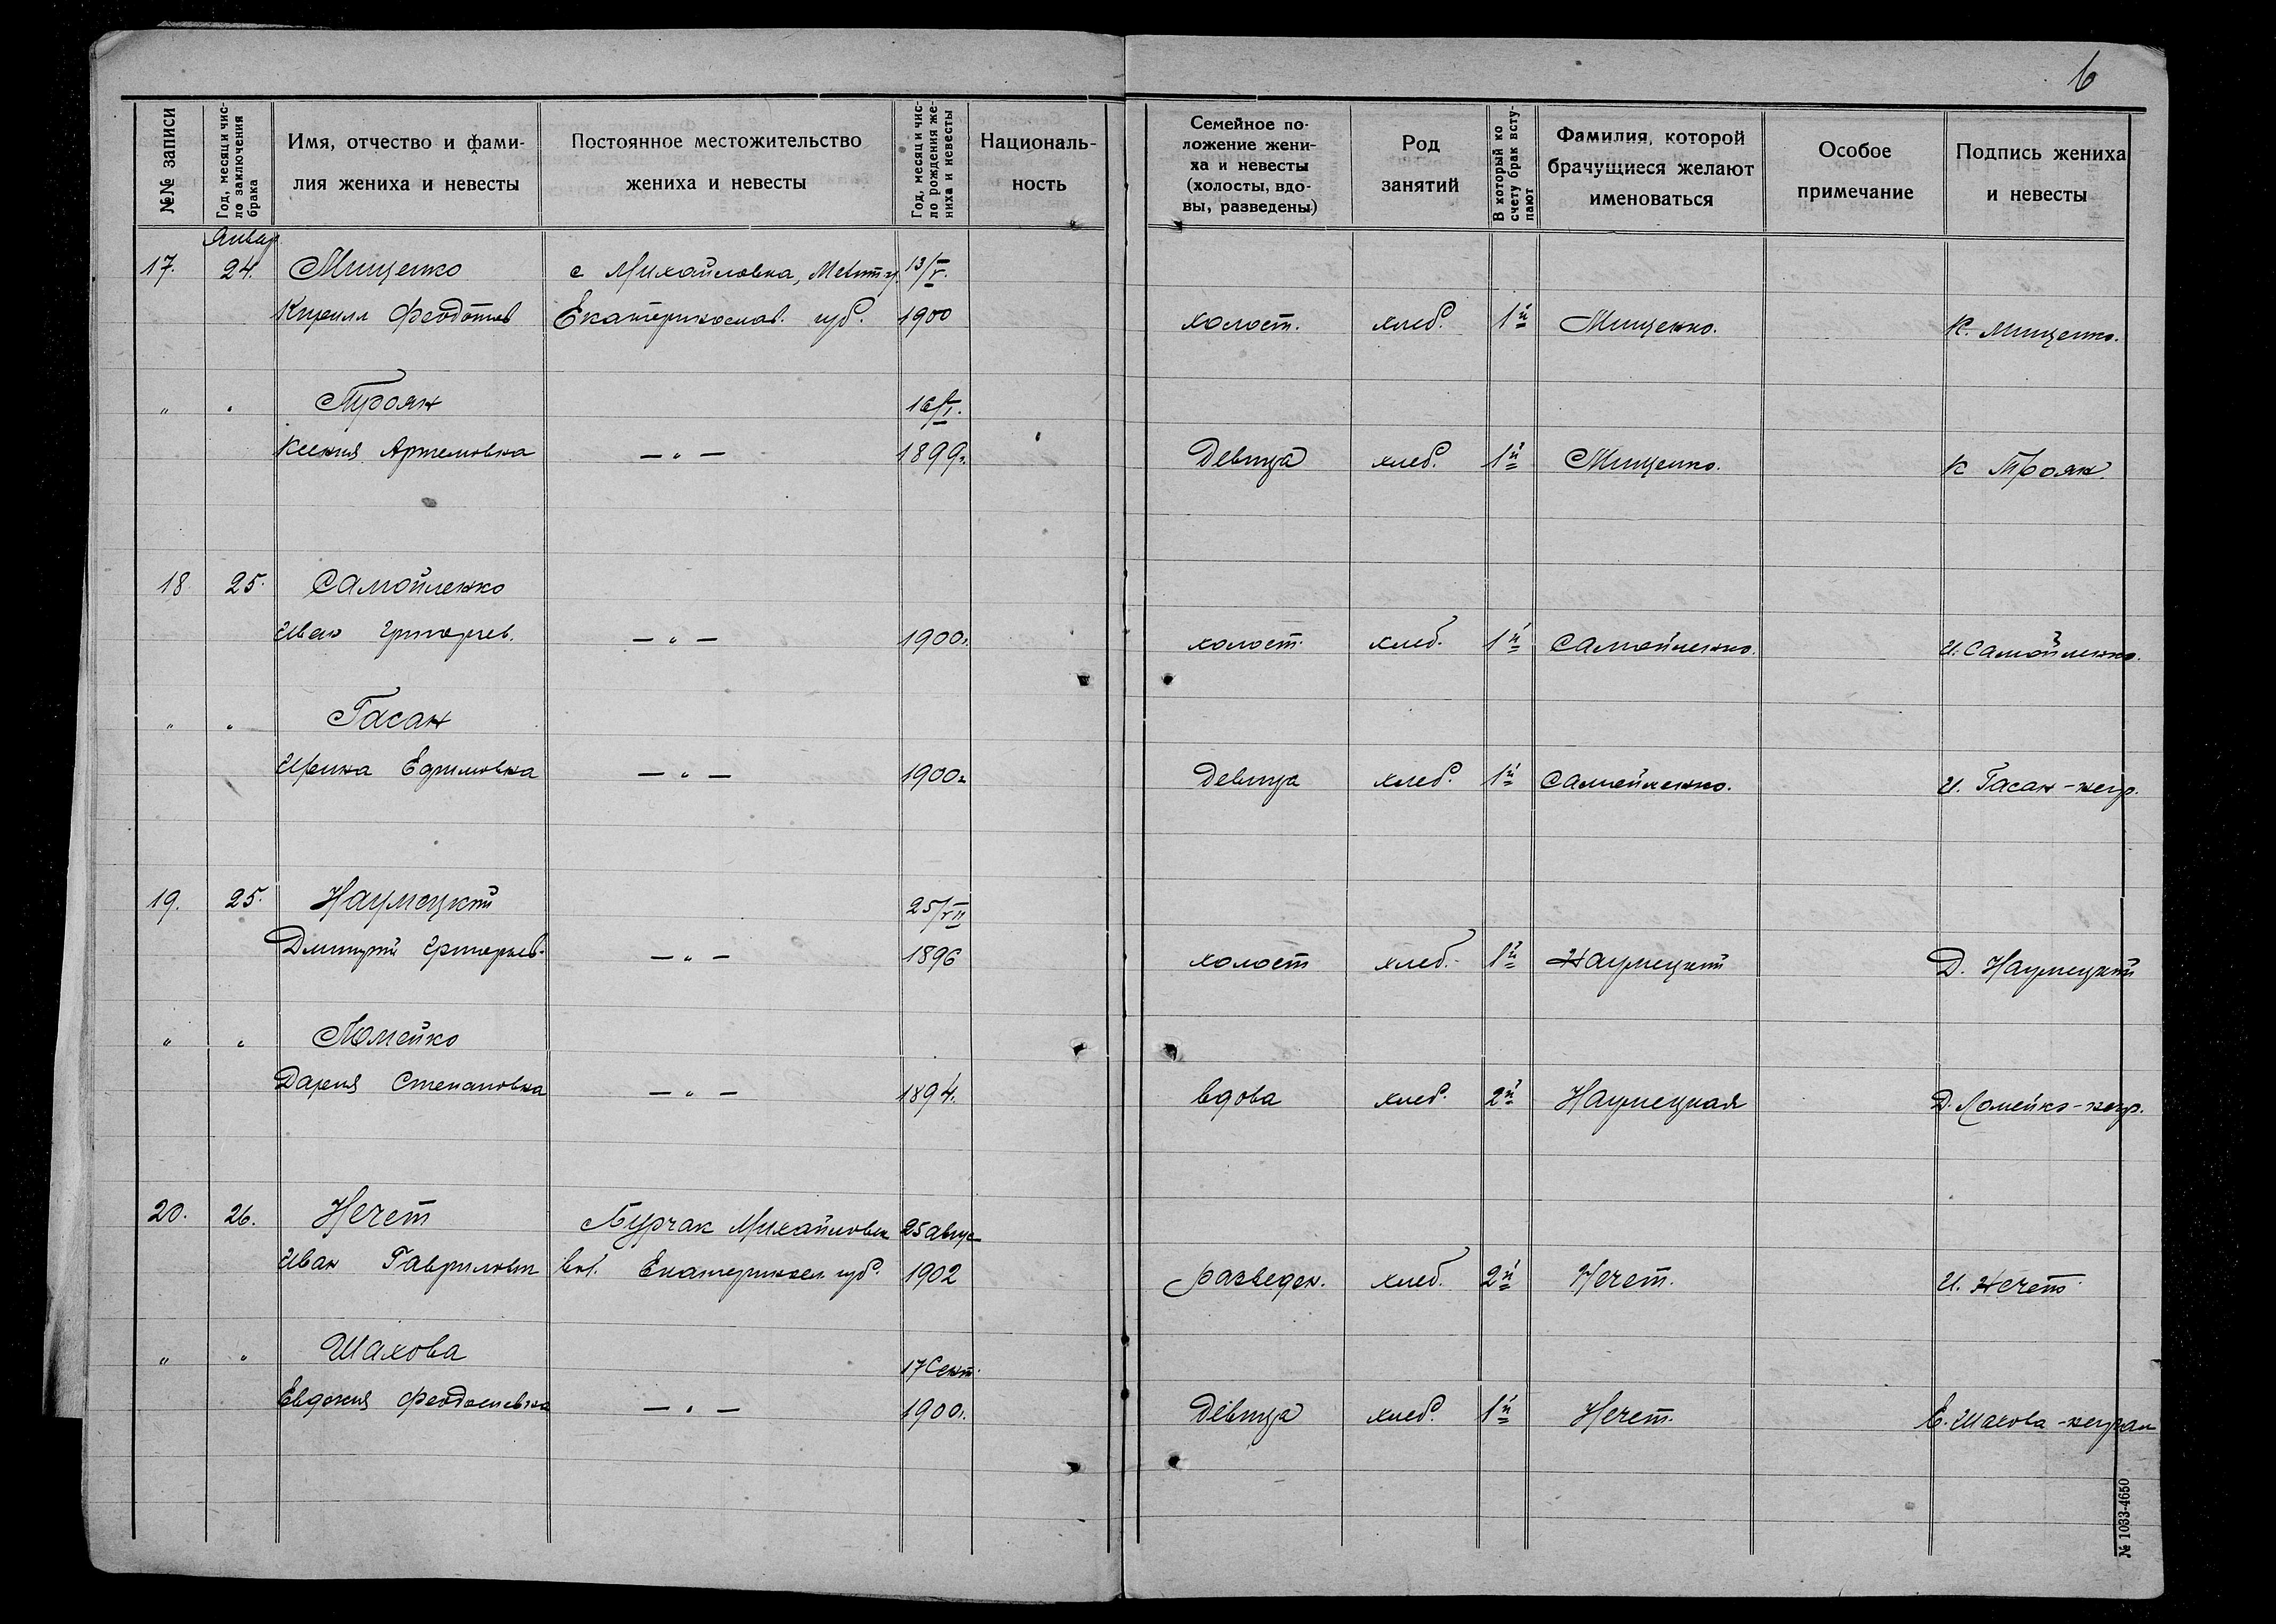 6
№№ записи
Год, месяц и чис-
ло заключения
брака
Имя, отчество и фами-
лия жениха и невесты
Постоянное местожительство
жениха и невесты
Год, месяц и чис-
ло рождения же-
ниха и невесты
Националь-
ность
Семейное по-
ложение жени-
ха и невесты
(холосты, вдо-
вы, разведены)
Род
занятий
В который ко
счету брак всту-
пают
Фамилия, которой
брачущиеся желают
именоваться
Особое
примечание
Подпись жениха
и невесты
Январ
17. 24. Мищенко с Михайловка, 13/V.
Кирилл Феодотов Екатеринослав. губ. 1900 холост. хлеб. 1й Мищенко. К. Мищенко.
" "
Ксения Артемовна — " — 1899г. Девица хлеб. 1й Мищенко. К
18 25. Самойленко
Иван Григорьев. — " — 1900г. холост. хлеб. 1й Самойленко. И. Самойленко.
" " Гасан
Ирина Ефимовна — " — 1900г Девица хлеб. 1й Самойленко. И. Гасан - негр.
19. 25. Наумецкий 25/VII
Дмитрий Григорьев. — " — 1896 холост хлеб. 1й Наумецкий Д. Наумецкий
" " Ломейко
Дария Степановна — " — 1894. вдова хлеб. 2й Наумецкая Д. Ломейко - негр.
20. 26. Нечет Бурчак Михайловск 25 авгус
Иван Гаврилович вол. Екатериносл. губ. 1902 разведен. хлеб. 2й Нечет. И. Нечет
" " Шахова 17 Сент.
Евдокия Феодосиевна — " — 1900г. Девица хлеб. 1й Нечет. Е. Шахова - неграм
№ 1033-4650